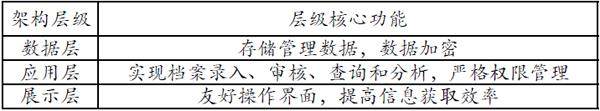 架构层级 层级核心功能
数据层 存储管理数据，数据加密
应用层 实现档案录入、审核、查询和分析，严格权限管理
展示层 友好操作界面，提高信息获取效率